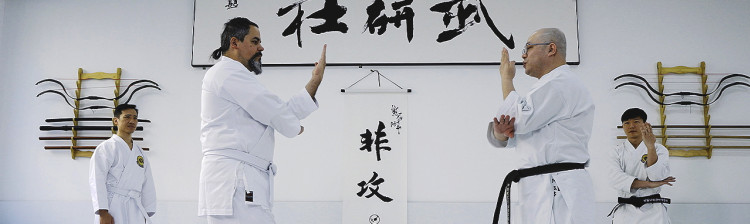 武研社
非攻